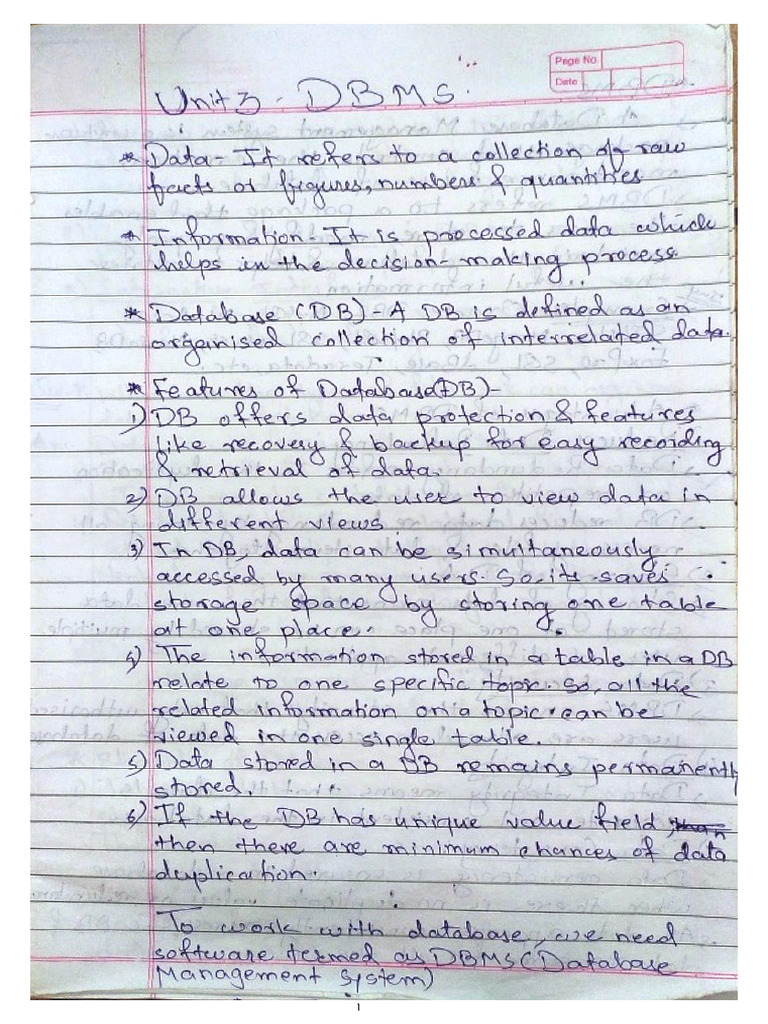 Page No
Date
Unit 3 - DBMS.
* Data - It refers to a collection of raw
facts or figures, numbers & quantities
* Information - It is processed data which
helps in the decision-making process.
* Database (DB) - A DB is defined as an
organised collection of interrelated data.
* Features of Database(DB)-
1) DB offers data protection & features
like recovery & backup for easy recording
& retrieval of data.
2) DB allows the user to view data in
different views.
3) In DB, data can be simultaneously
accessed by many users. So, its saves
storage space by storing one table
at one place.
4) The information stored in a table in a DB
relate to one specific topic. So, all the
related information on a topic can be
viewed in one single table.
5) Data stored in a DB remains permanently
stored.
6) If the DB has unique value field,
then there are minimum chances of data
duplication.
To work with database, we need
software termed as DBMS (Database
Management System)
1